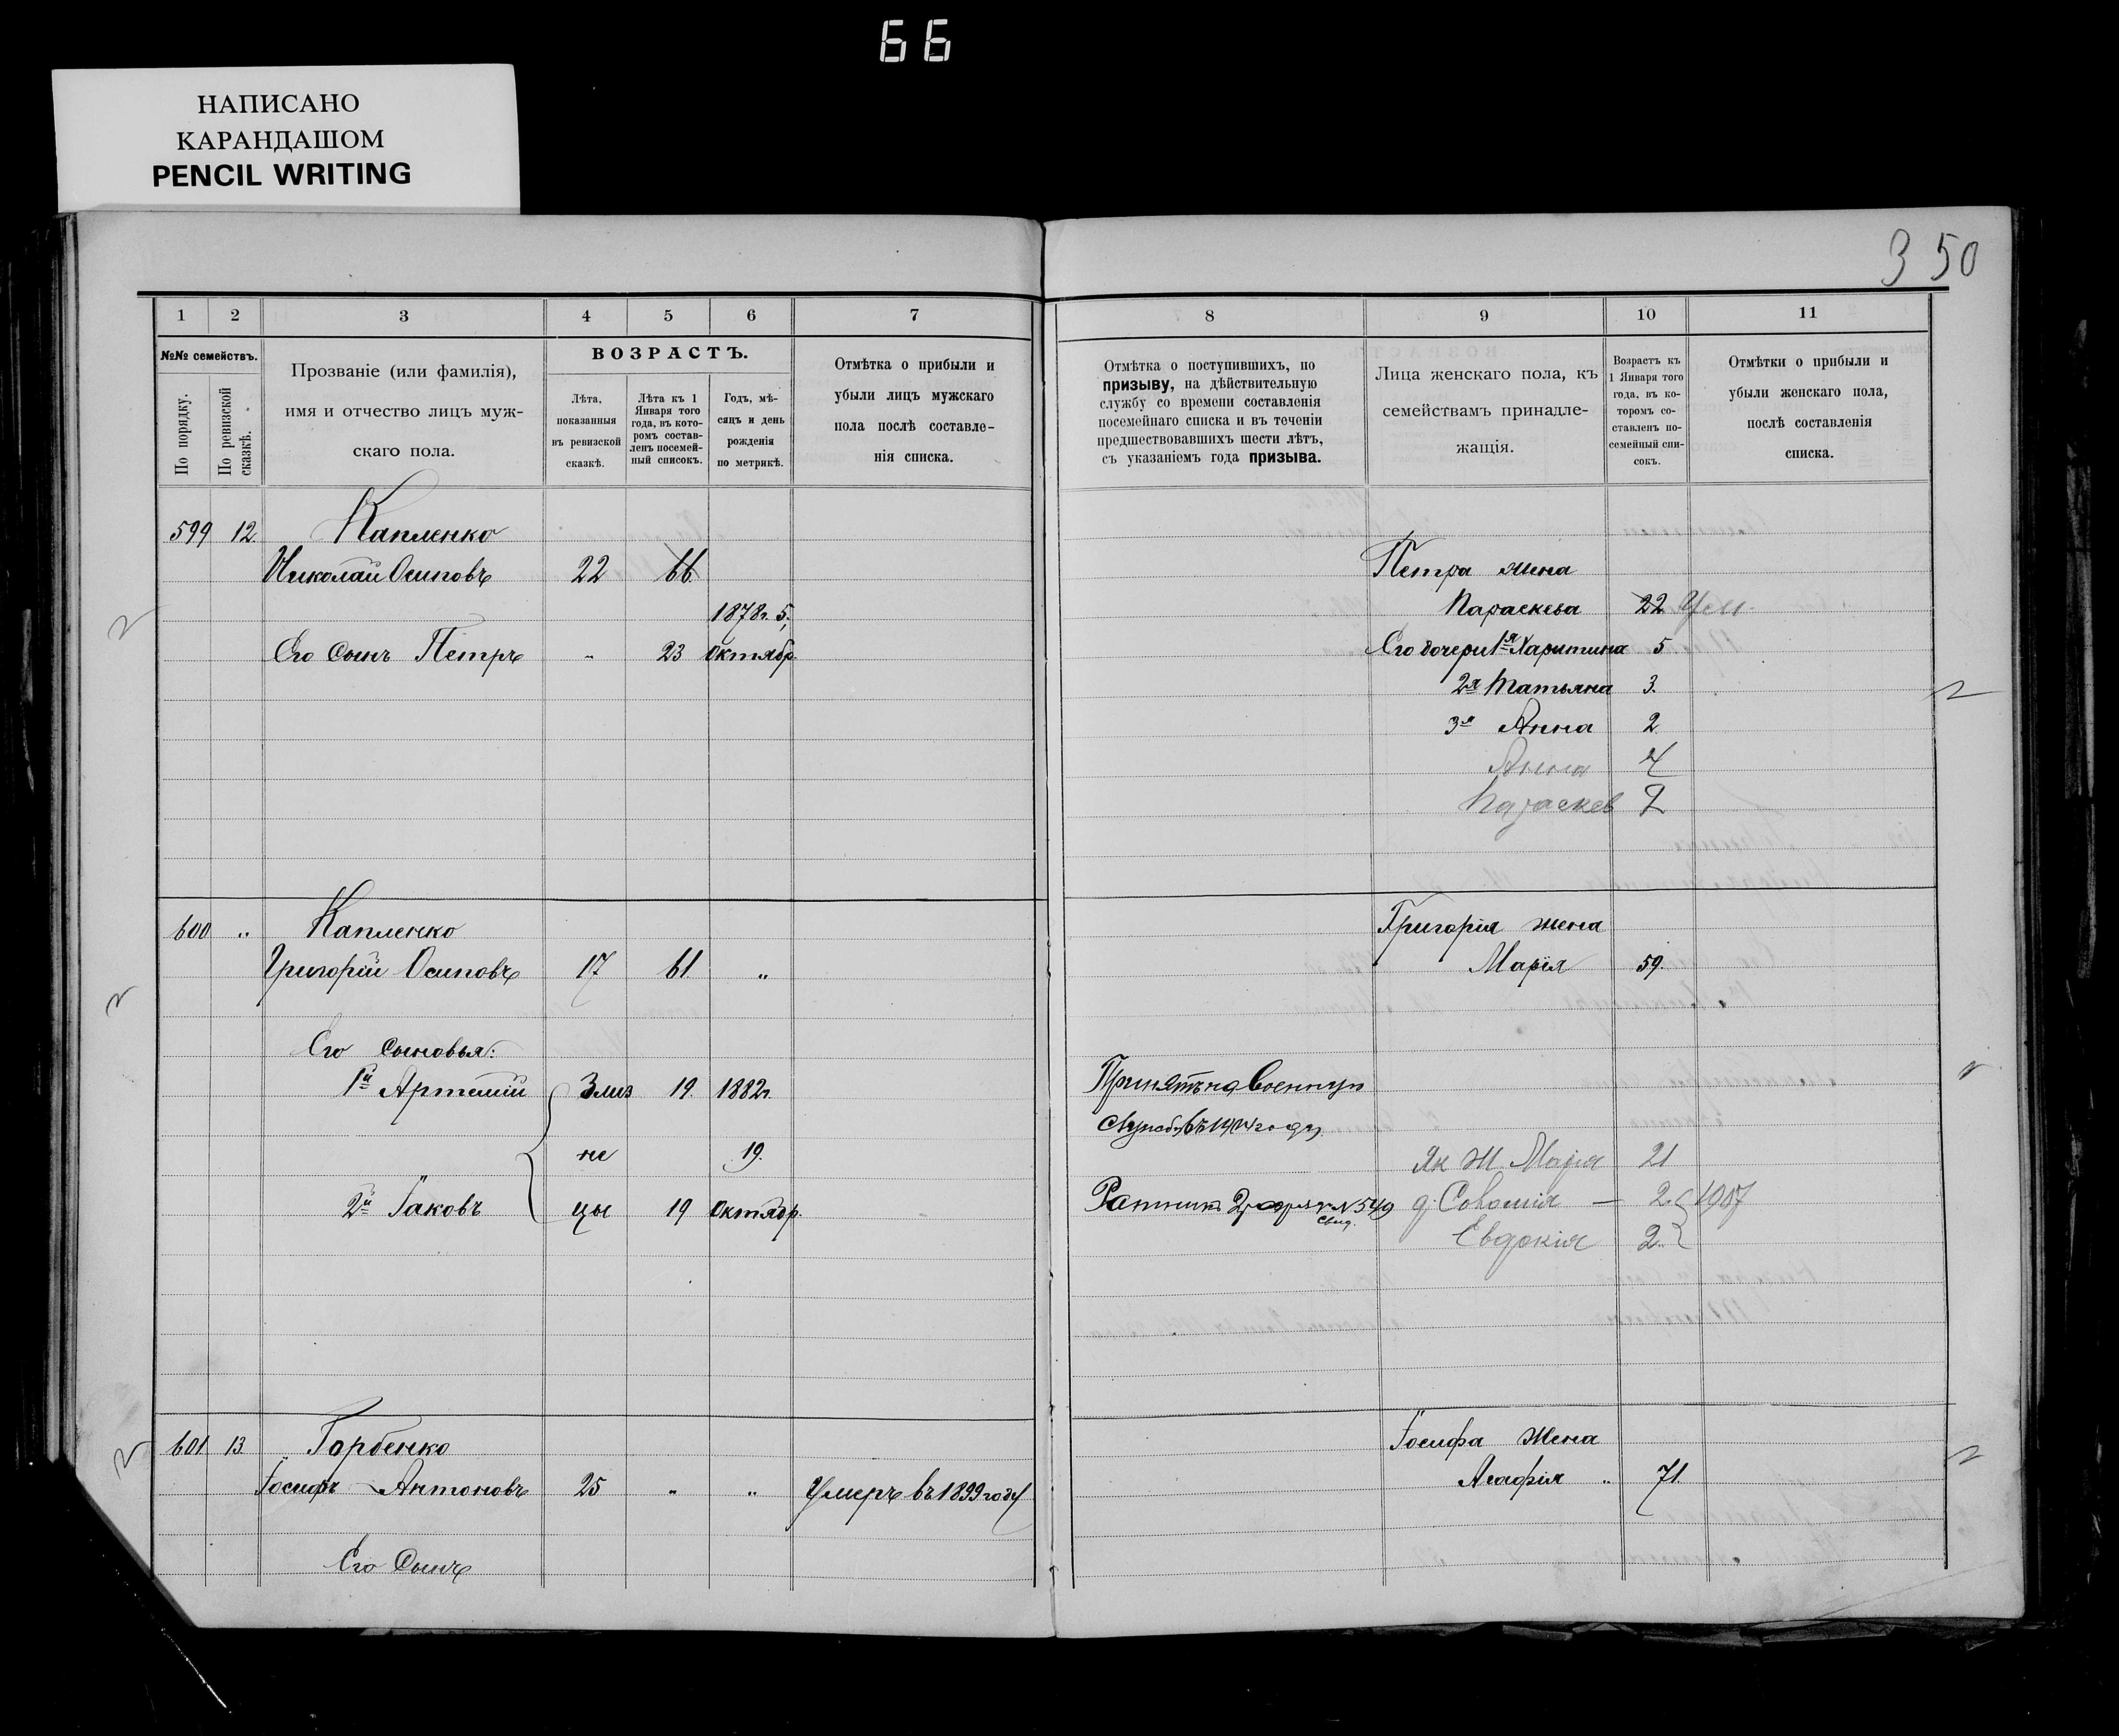 66
НАПИСАНО
КАРАНДАШОМ
PENCIL WRITING
350
1 2 3 4 5 6 7
№№ семействъ.
По порядку.
По ревизской сказкѣ.
Прозваніе (или фамилія),
имя и отчество лицъ муж-
скаго пола.
ВОЗРАСТЪ.
Лѣта,
показанныя
въ ревизской
сказкѣ.
Лѣта къ 1
Января того
года, въ кото-
ромъ состав-
ленъ посемей-
ный списокъ.
Годъ, мѣ-
сяцъ и день
рожденія
по метрикѣ.
Отмѣтка о прибыли и
убыли лицъ мужскаго
пола послѣ составле-
нія списка.
599 12. Капленко
Николай Осиповъ 22 66
1878г. 5,
Его сынъ Петръ „ 23 Октябр.
600 „ Капленко
Григорій Осиповъ 17 61 „
Его сыновья:
1й Артемій 19. 1882г.
не 19.
2й Іаковъ цы 19 Октябр.
601 13. Горбенко
Іосифъ Антоновъ 25 „ „ Умеръ въ 1899 году
Его Сынъ
8 9 10 11
Отмѣтка о поступившихъ, по
призыву, на дѣйствительную
службу со времени составленія
посемейнаго списка и въ теченіи
предшествовавшихъ шести лѣтъ,
съ указаніемъ года призыва.
Лица женскаго пола, къ
семействамъ принадле-
жащія.
Возрастъ къ
1 Января того
года, въ ко-
торомъ со-
ставленъ по-
семейный спи-
сокъ.
Отмѣтки о прибыли и
убыли женскаго пола,
послѣ составленія
списка.
Петра жена
Параскева 22 Ум.
Его дочери 1я Харитина 5
2я Татьяна 3.
3я Анна 2
Анна 4
Параскев 2
Григорія жена
Марія 59.
Принятъ на Военную
службу въ году
Як Ж. Марія 21
Ратник 2 разряда № 549 д. Соломія — 2 1907
Свид.
Евдокія 2
Іосифа Жена
Агафія „ 71.